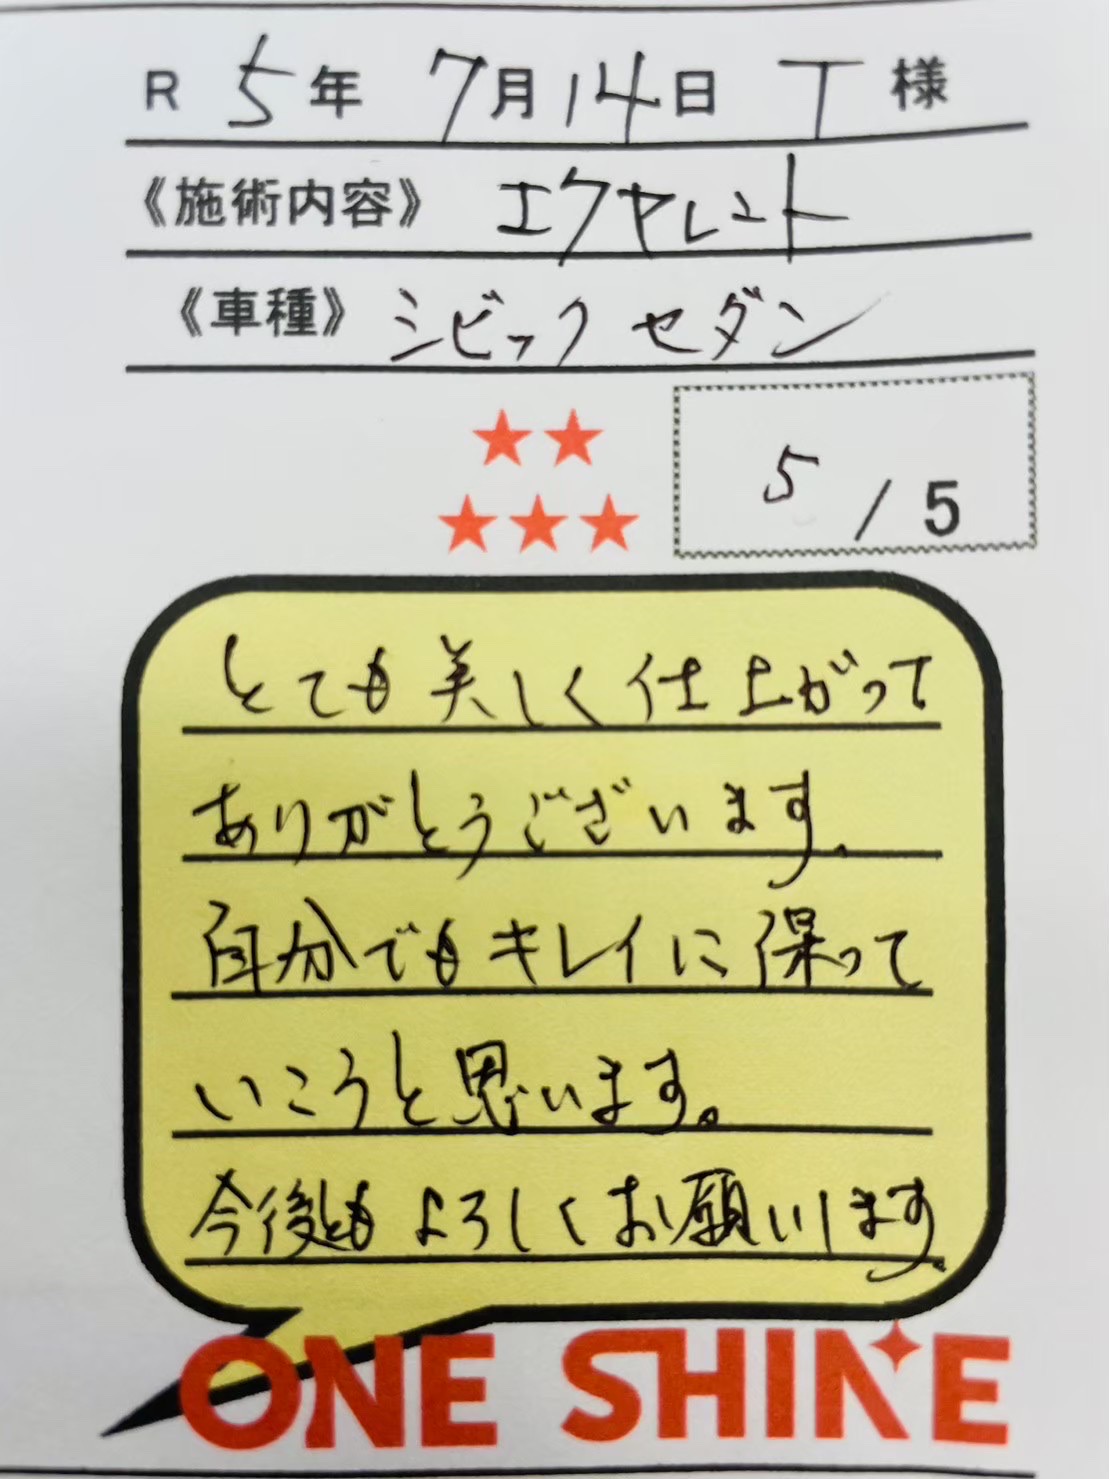 R 5年 7月14日 T 様
《施術内容》 エクセレント
《車種》 シビック セダン
★★
★★★
5 / 5
とても美しく仕上がって
ありがとうございます。
自分でもキレイに保って
いこうと思います。
今後ともよろしくお願いします。
ONE SHINE